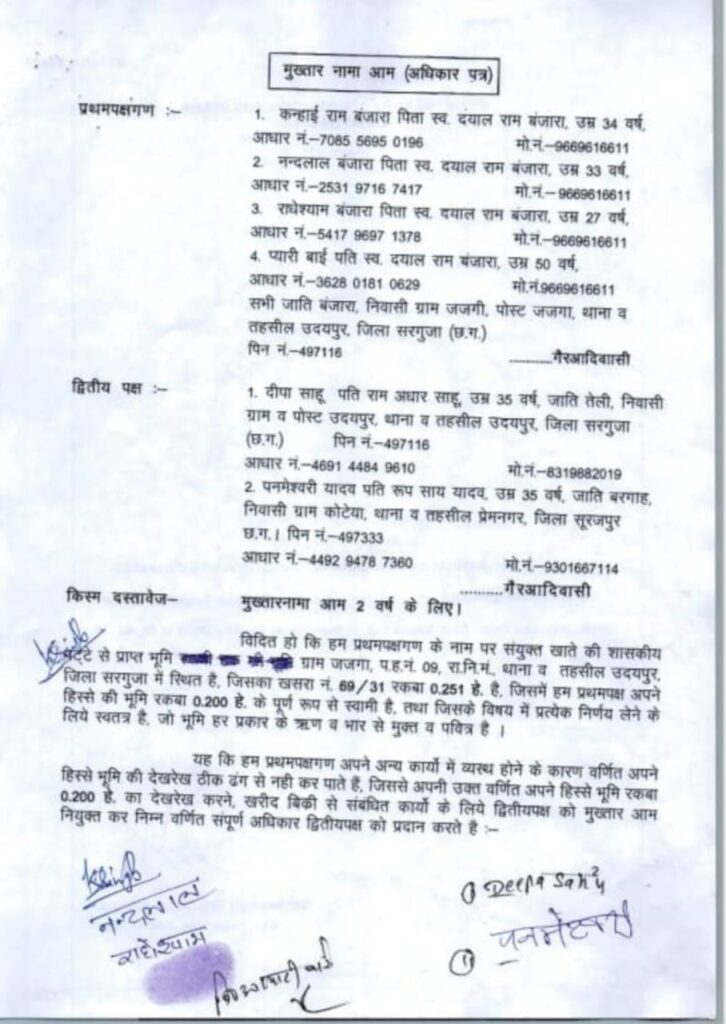 मुख्तार नामा आम (अधिकार पत्र)
प्रथमपक्षगण :–
1. कन्हाई राम बंजारा पिता स्व. दयाल राम बंजारा, उम्र 34 वर्ष,
आधार नं.–7085 5695 0196 मो.नं.–9669616611
2. नन्दलाल बंजारा पिता स्व. दयाल राम बंजारा, उम्र 33 वर्ष,
आधार नं.–2531 9716 7417 मो.नं.– 9669616611
3. राधेश्याम बंजारा पिता स्व. दयाल राम बंजारा, उम्र 27 वर्ष,
आधार नं.–5417 9697 1378 मो.नं.–9669616611
4. प्यारी बाई पति स्व. दयाल राम बंजारा, उम्र 50 वर्ष,
आधार नं.–3628 0181 0629 मो.नं.9669616611
सभी जाति बंजारा, निवासी ग्राम जजगी, पोस्ट जजगा, थाना व
तहसील उदयपुर, जिला सरगुजा (छ.ग.)
पिन नं.–497116 ..........गैरआदिवाासी
द्वितीय पक्ष :–
1. दीपा साहू पति राम अधार साहू, उम्र 35 वर्ष, जाति तेली, निवासी
ग्राम व पोस्ट उदयपुर, थाना व तहसील उदयपुर, जिला सरगुजा
(छ.ग.) पिन नं.–497116
आधार नं.–4691 4484 9610 मो.नं.–8319882019
2. पनमेश्वरी यादव पति रूप साय यादव, उम्र 35 वर्ष, जाति बरगाह,
निवासी ग्राम कोटेया, थाना व तहसील प्रेमनगर, जिला सूरजपुर
छ.ग.। पिन नं.–497333
आधार नं.–4492 9478 7360 मो.नं.–9301667114
..........गैरआदिवासी
किस्म दस्तावेज– मुख्तारनामा आम 2 वर्ष के लिए।
विदित हो कि हम प्रथमपक्षगण के नाम पर संयुक्त खाते की शासकीय
पट्टे से प्राप्त भूमि ग्राम जजगा, प.ह.नं. 09, रा.नि.मं., थाना व तहसील उदयपुर,
जिला सरगुजा में स्थित है, जिसका खसरा नं. 69/31 रकबा 0.251 हे. है, जिसमें हम प्रथमपक्ष अपने
हिस्से की भूमि रकबा 0.200 हे. के पूर्ण रूप से स्वामी है, तथा जिसके विषय में प्रत्येक निर्णय लेने के
लिये स्वतत्र है, जो भूमि हर प्रकार के ऋण व भार से मुक्त व पवित्र है ।
यह कि हम प्रथमपक्षगण अपने अन्य कार्यो में व्यस्थ होने के कारण वर्णित अपने
हिस्से भूमि की देखरेख ठीक ढंग से नही कर पाते हैं, जिससे अपनी उक्त वर्णित अपने हिस्से भूमि रकबा
0.200 हे. का देखरेख करने, खरीद बिक्री से संबंधित कार्यो के लिये द्वितीयपक्ष को मुख्तार आम
नियुक्त कर निम्न वर्णित संपूर्ण अधिकार द्वितीयपक्ष को प्रदान करते है :–
नन्दलाल
राधेश्याम
Deepa Sahu